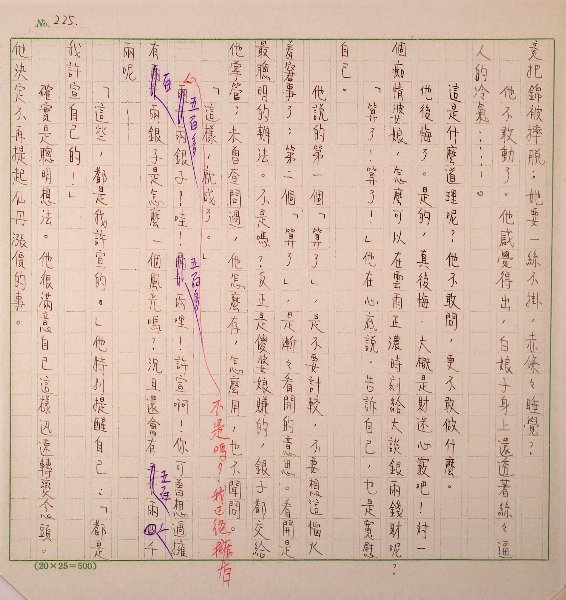 No. 225.
竟把錦被摔脫;她要一絲不掛,赤條々睡覺?
他不敢動了。他感覺得出,白娘子身上還透著絲々逼
人的冷氣……。
這是什麼道理呢?他不敢問,更不敢做什麼。
他後悔了。是的,真後悔,大概是財迷心竅吧!對一
個痴情婆娘,怎麼可以在雲雨正濃時刻給大談銀兩錢財呢?
「算了!算了!」他在心底說,告訴自己,也是寬慰
自己。
他說的第一個「算了」,是不要計較,不要想這惱火
著窘事了;第二個「算了」,是漸々看開的意思。看開是
最聰明的辦法。不是嗎?反正是傻婆娘賺的,銀子都交給
他掌管;未曾查問過,他怎麼存,怎麼用,也不聞問。
「這樣,就成了。」
不是嗎?我已經擁有
五百多兩銀子!哇!五百多兩哩!許宣啊!你可曾想過擁
有百兩銀子是怎麼一個風亮嗎?況且還會有五百兩、千
兩呢——
「這些,都是我許宣的。」他特別提醒自己:「都是
我許宣自己的!」
確實是聰明想法。他很滿意自己這樣迅速轉換念頭。
他決定不再提起仙丹漲價的事。
(20×25=500)